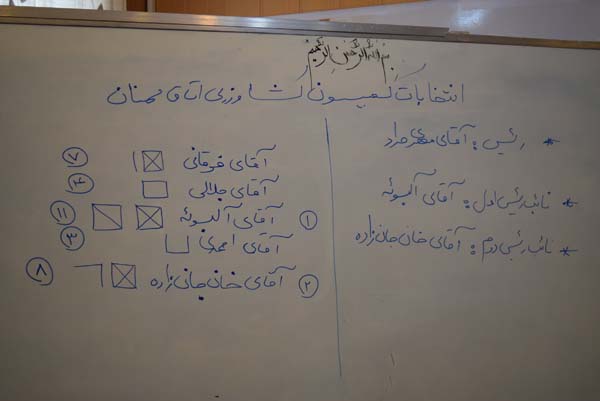 بسم الله الرحمن الرحیم
انتخابات کمیسیون کشاورزی اتاق سمنان
* رئیس : آقای مهراد
* نائب رئیس اول : آقای آلبوئه
* نائب رئیس دوم : آقای خان جان زاده
آقای فوقانی ۷
آقای جلالی ۴
۱ آقای آلبوئه ۱۱
آقای احمدی ۳
۲ آقای خان جان زاده ۸